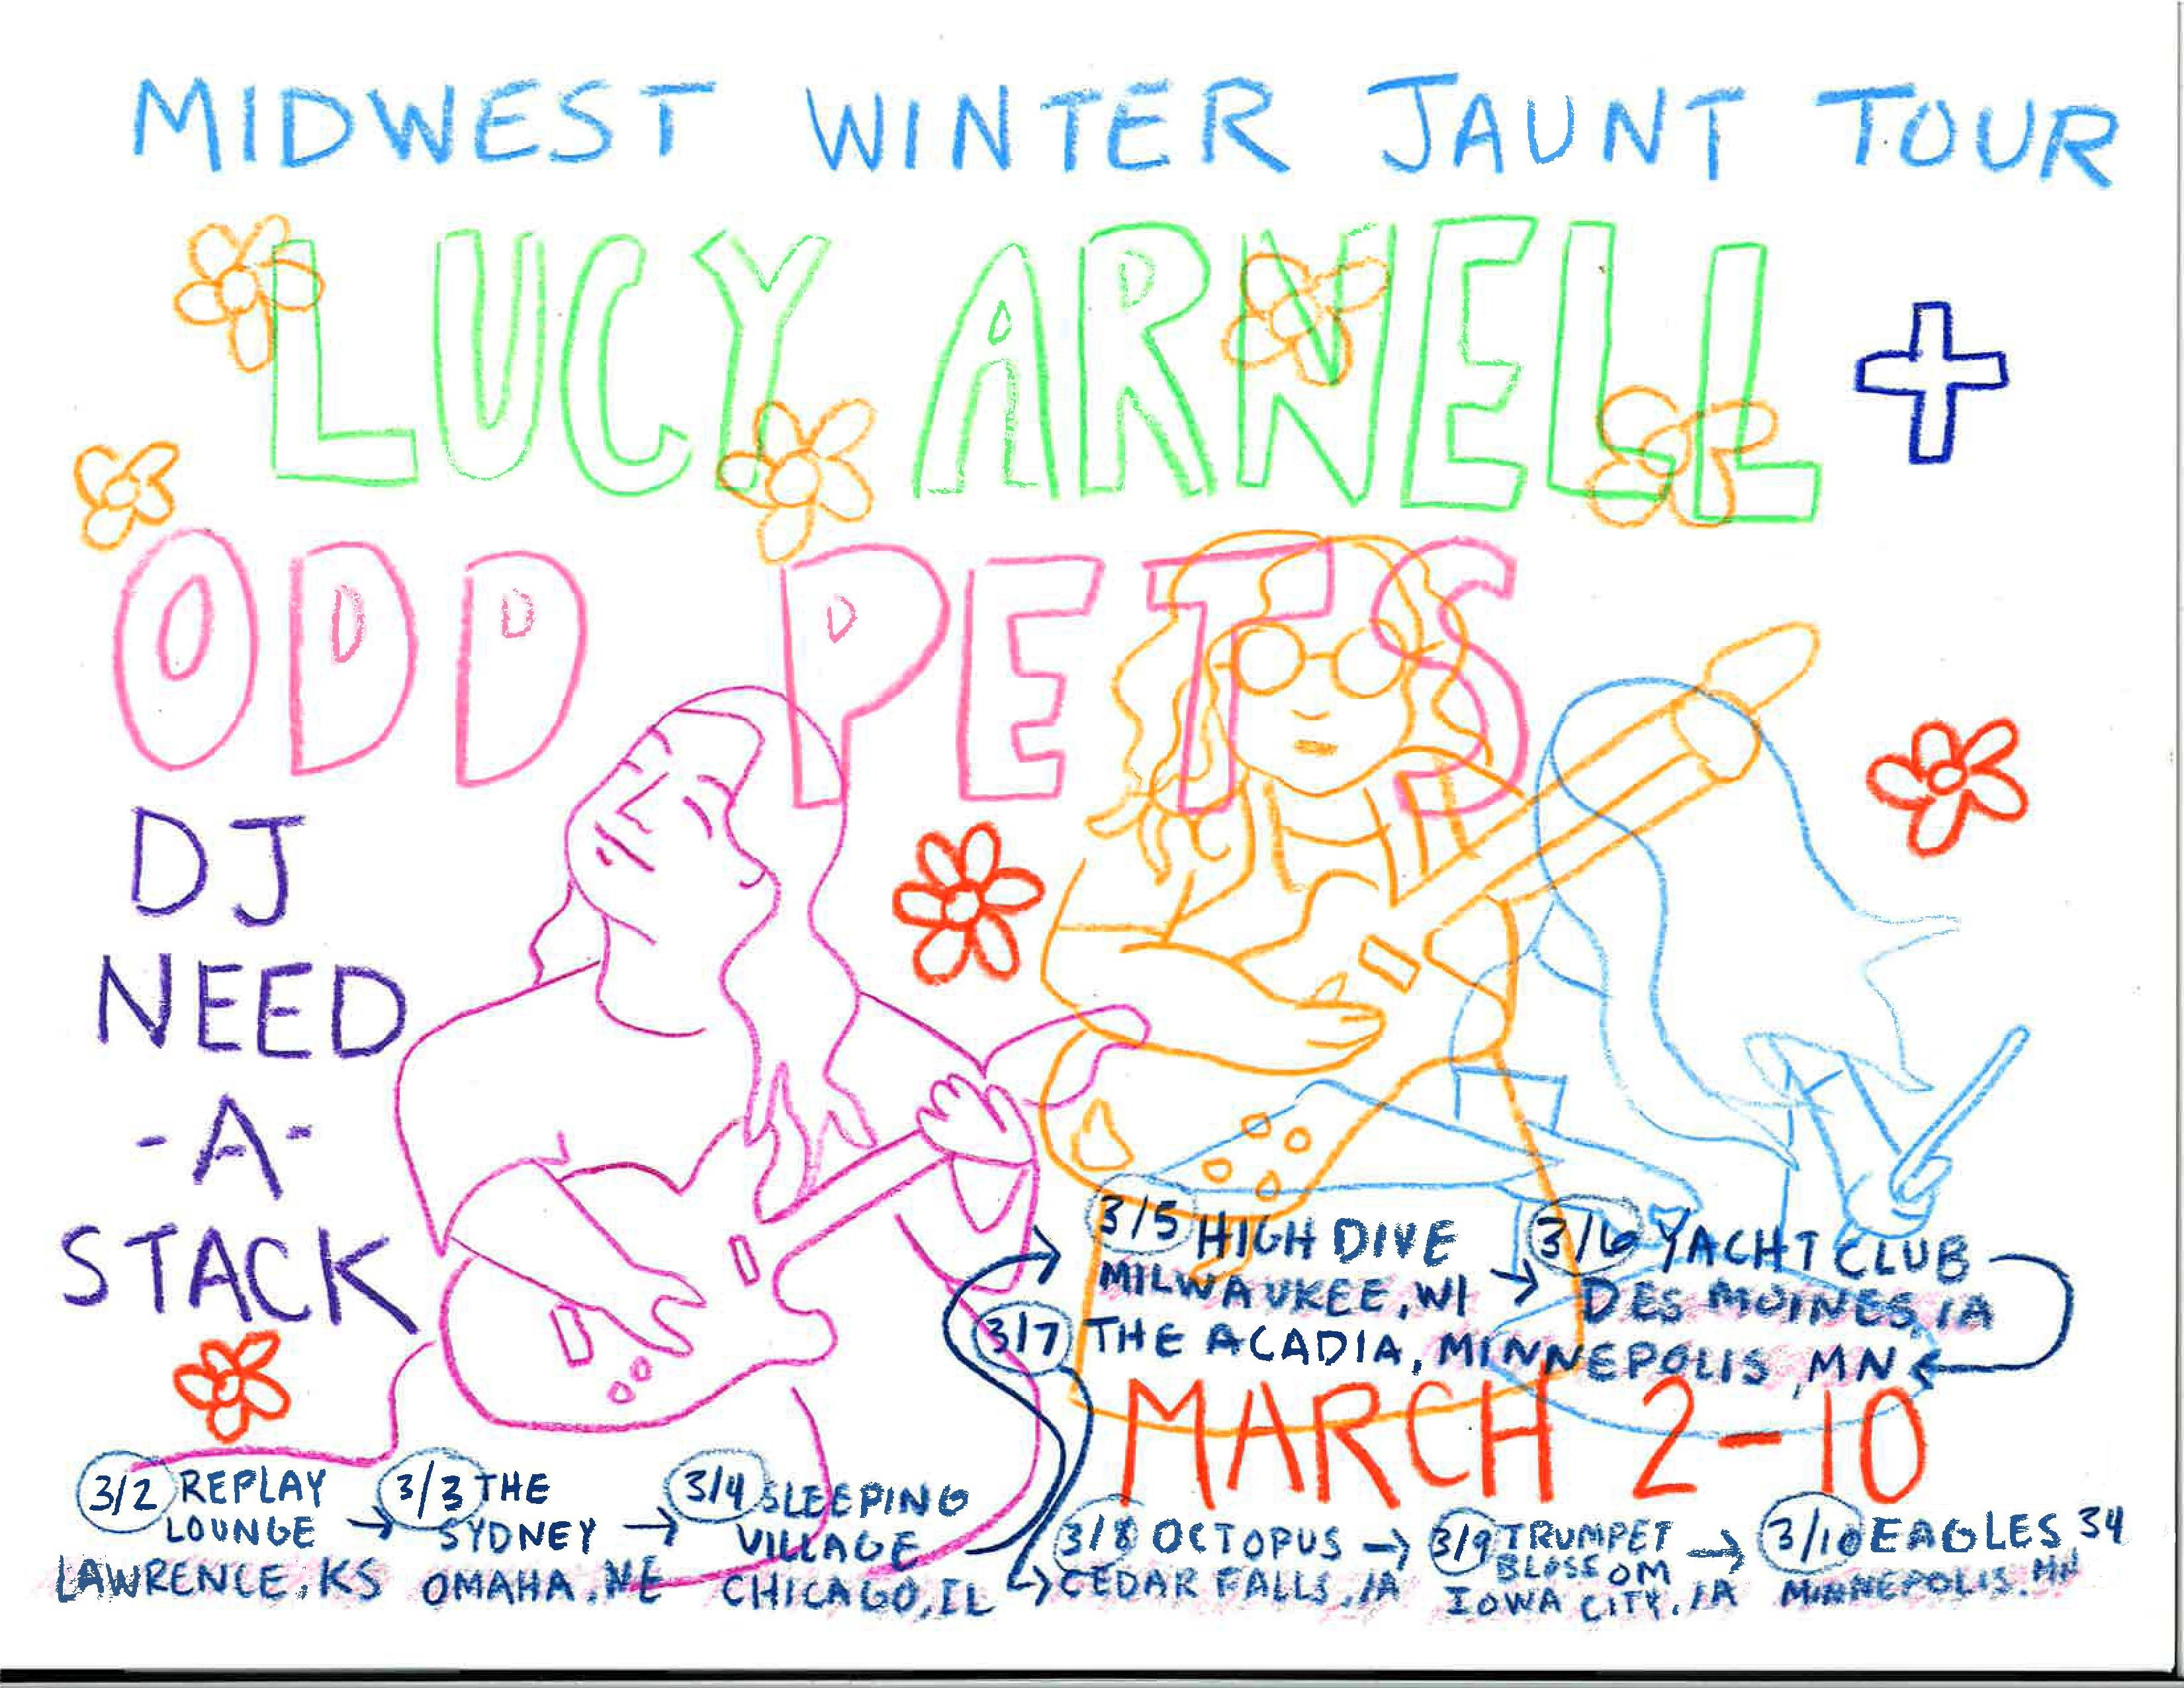 MIDWEST WINTER JAUNT TOUR
LUCY ARNELL +
ODD PETS
DJ
NEED
-A-
STACK
3/2 REPLAY
LOUNGE
LAWRENCE, KS
→ 3/3 THE
SYDNEY
OMAHA, NE
→ 3/4 SLEEPING
VILLAGE
CHICAGO, IL
3/5 HIGH DIVE
MILWAUKEE, WI
→ 3/6 YACHT CLUB
DES MOINES, IA
3/7 THE ACADIA, MINNEPOLIS, MN
MARCH 2-10
3/8 OCTOPUS
CEDAR FALLS, IA
→ 3/9 TRUMPET
BLOSSOM
IOWA CITY, IA
→ 3/10 EAGLES 34
MINNEPOLIS, MN